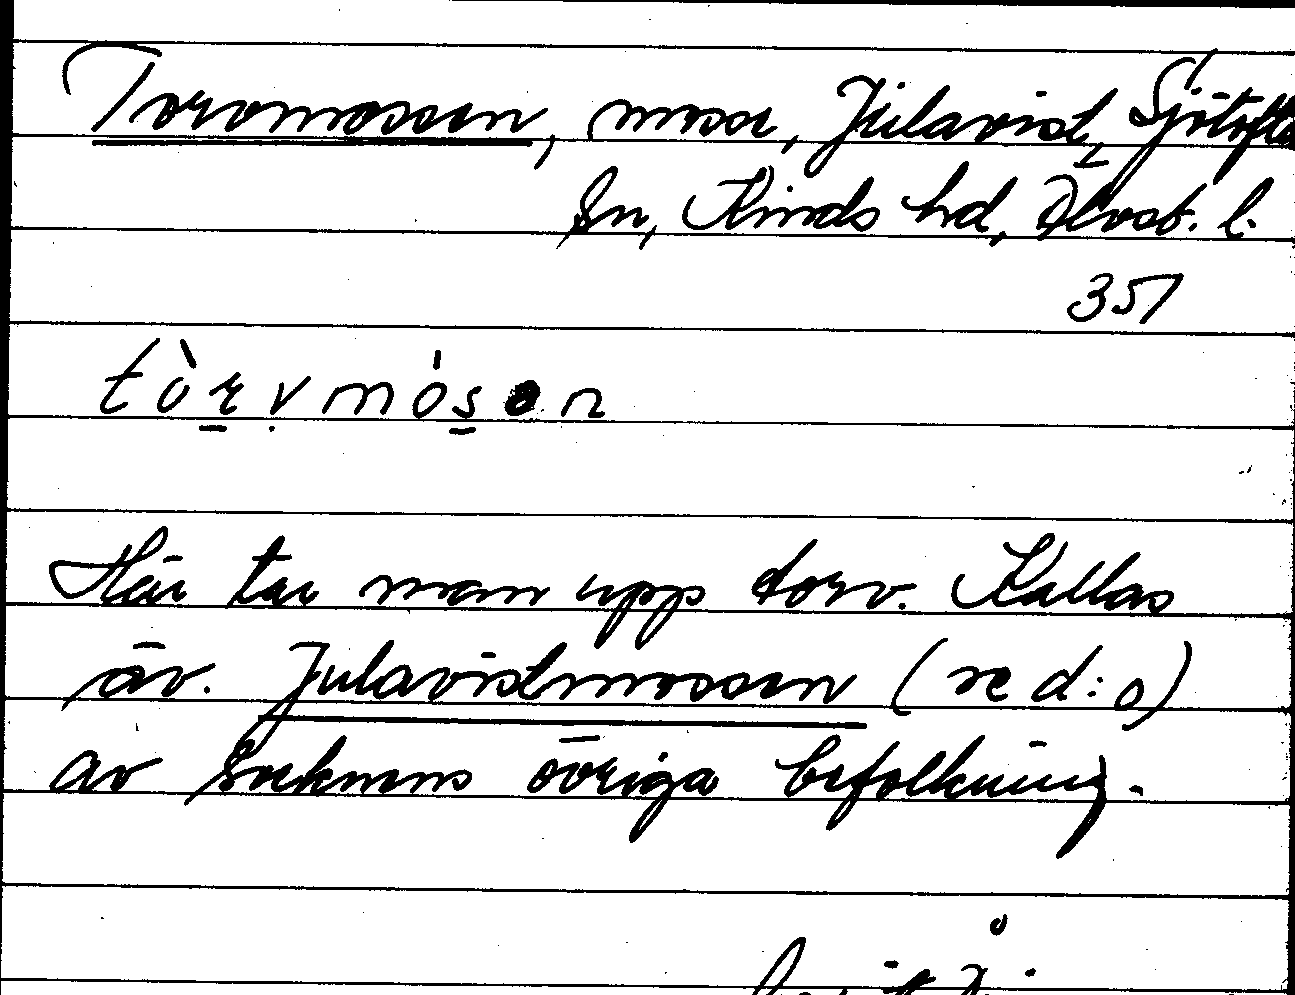 Torvmossen, mosse, Julavist, Sjötofta
sn, Kinds hd, Älvsb. l.
351
tòrvmósen
Här tar man upp torv. Kallas
äv. Julavistmossen (se d:o)
av socknens övriga befolkning.